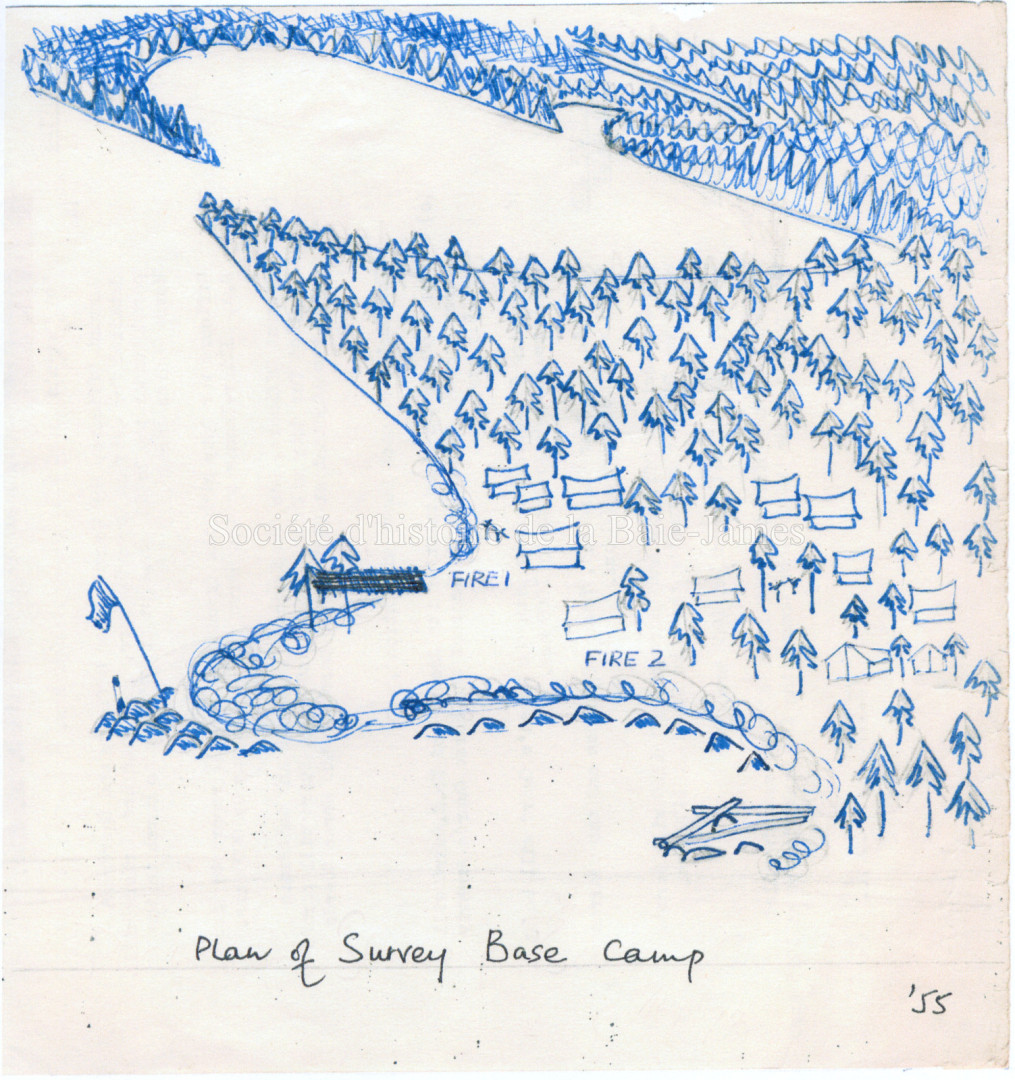 Société d'histoire de la Baie-James
FIRE 1
FIRE 2
Plan of Survey Base Camp
'55